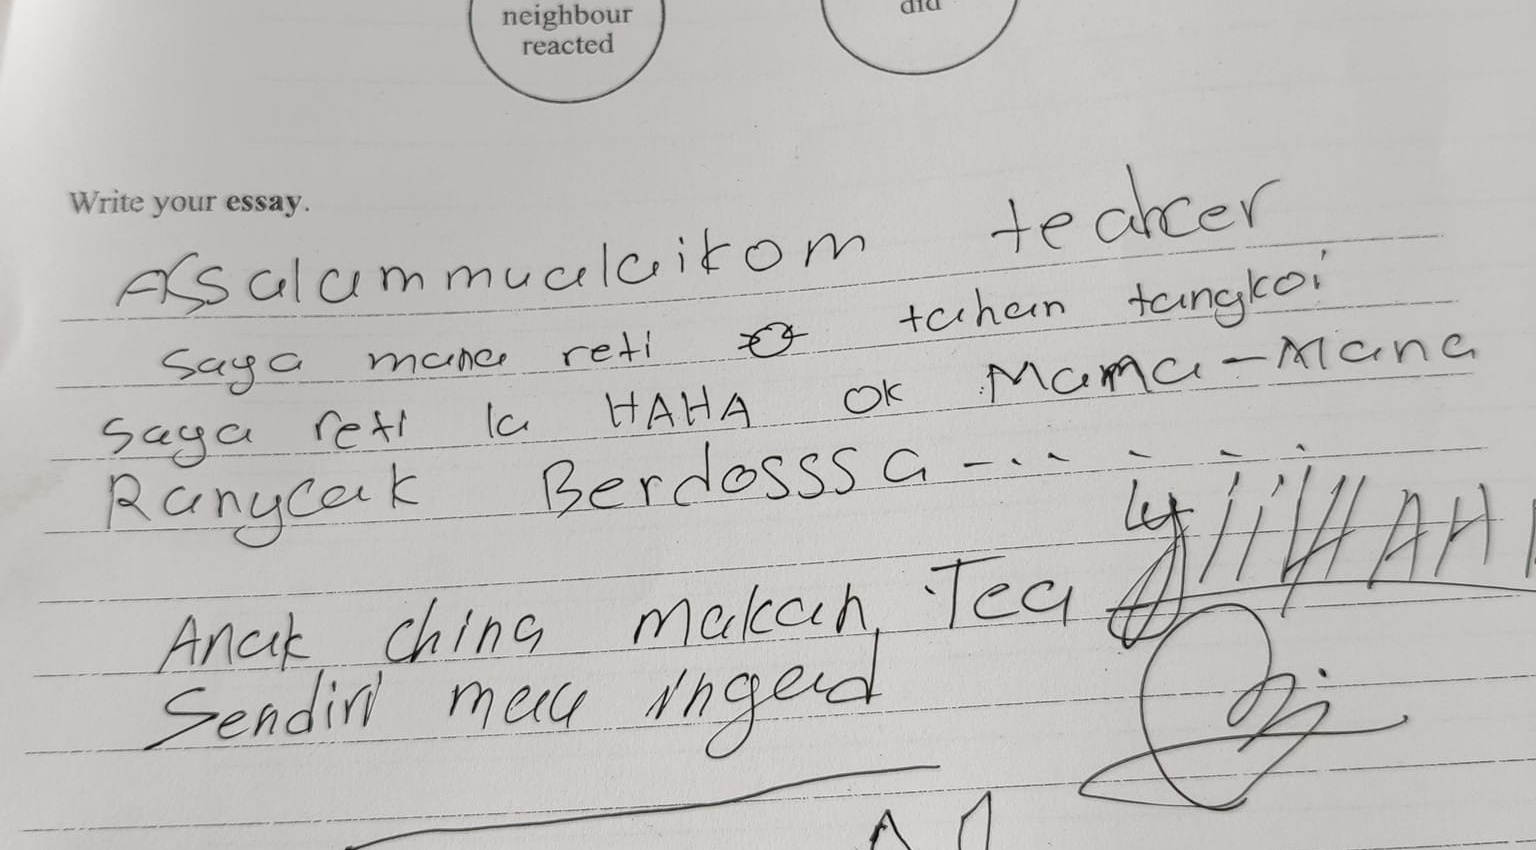 neighbour
reacted
did
Write your essay.
Assalammualaikom teahcer
saya mana reti tahan tangkoi
saya reti la HAHA OK Mama-Mana
Ranycak Berdosssa -......
Anak china makan Tea
Sendiri mau ingad